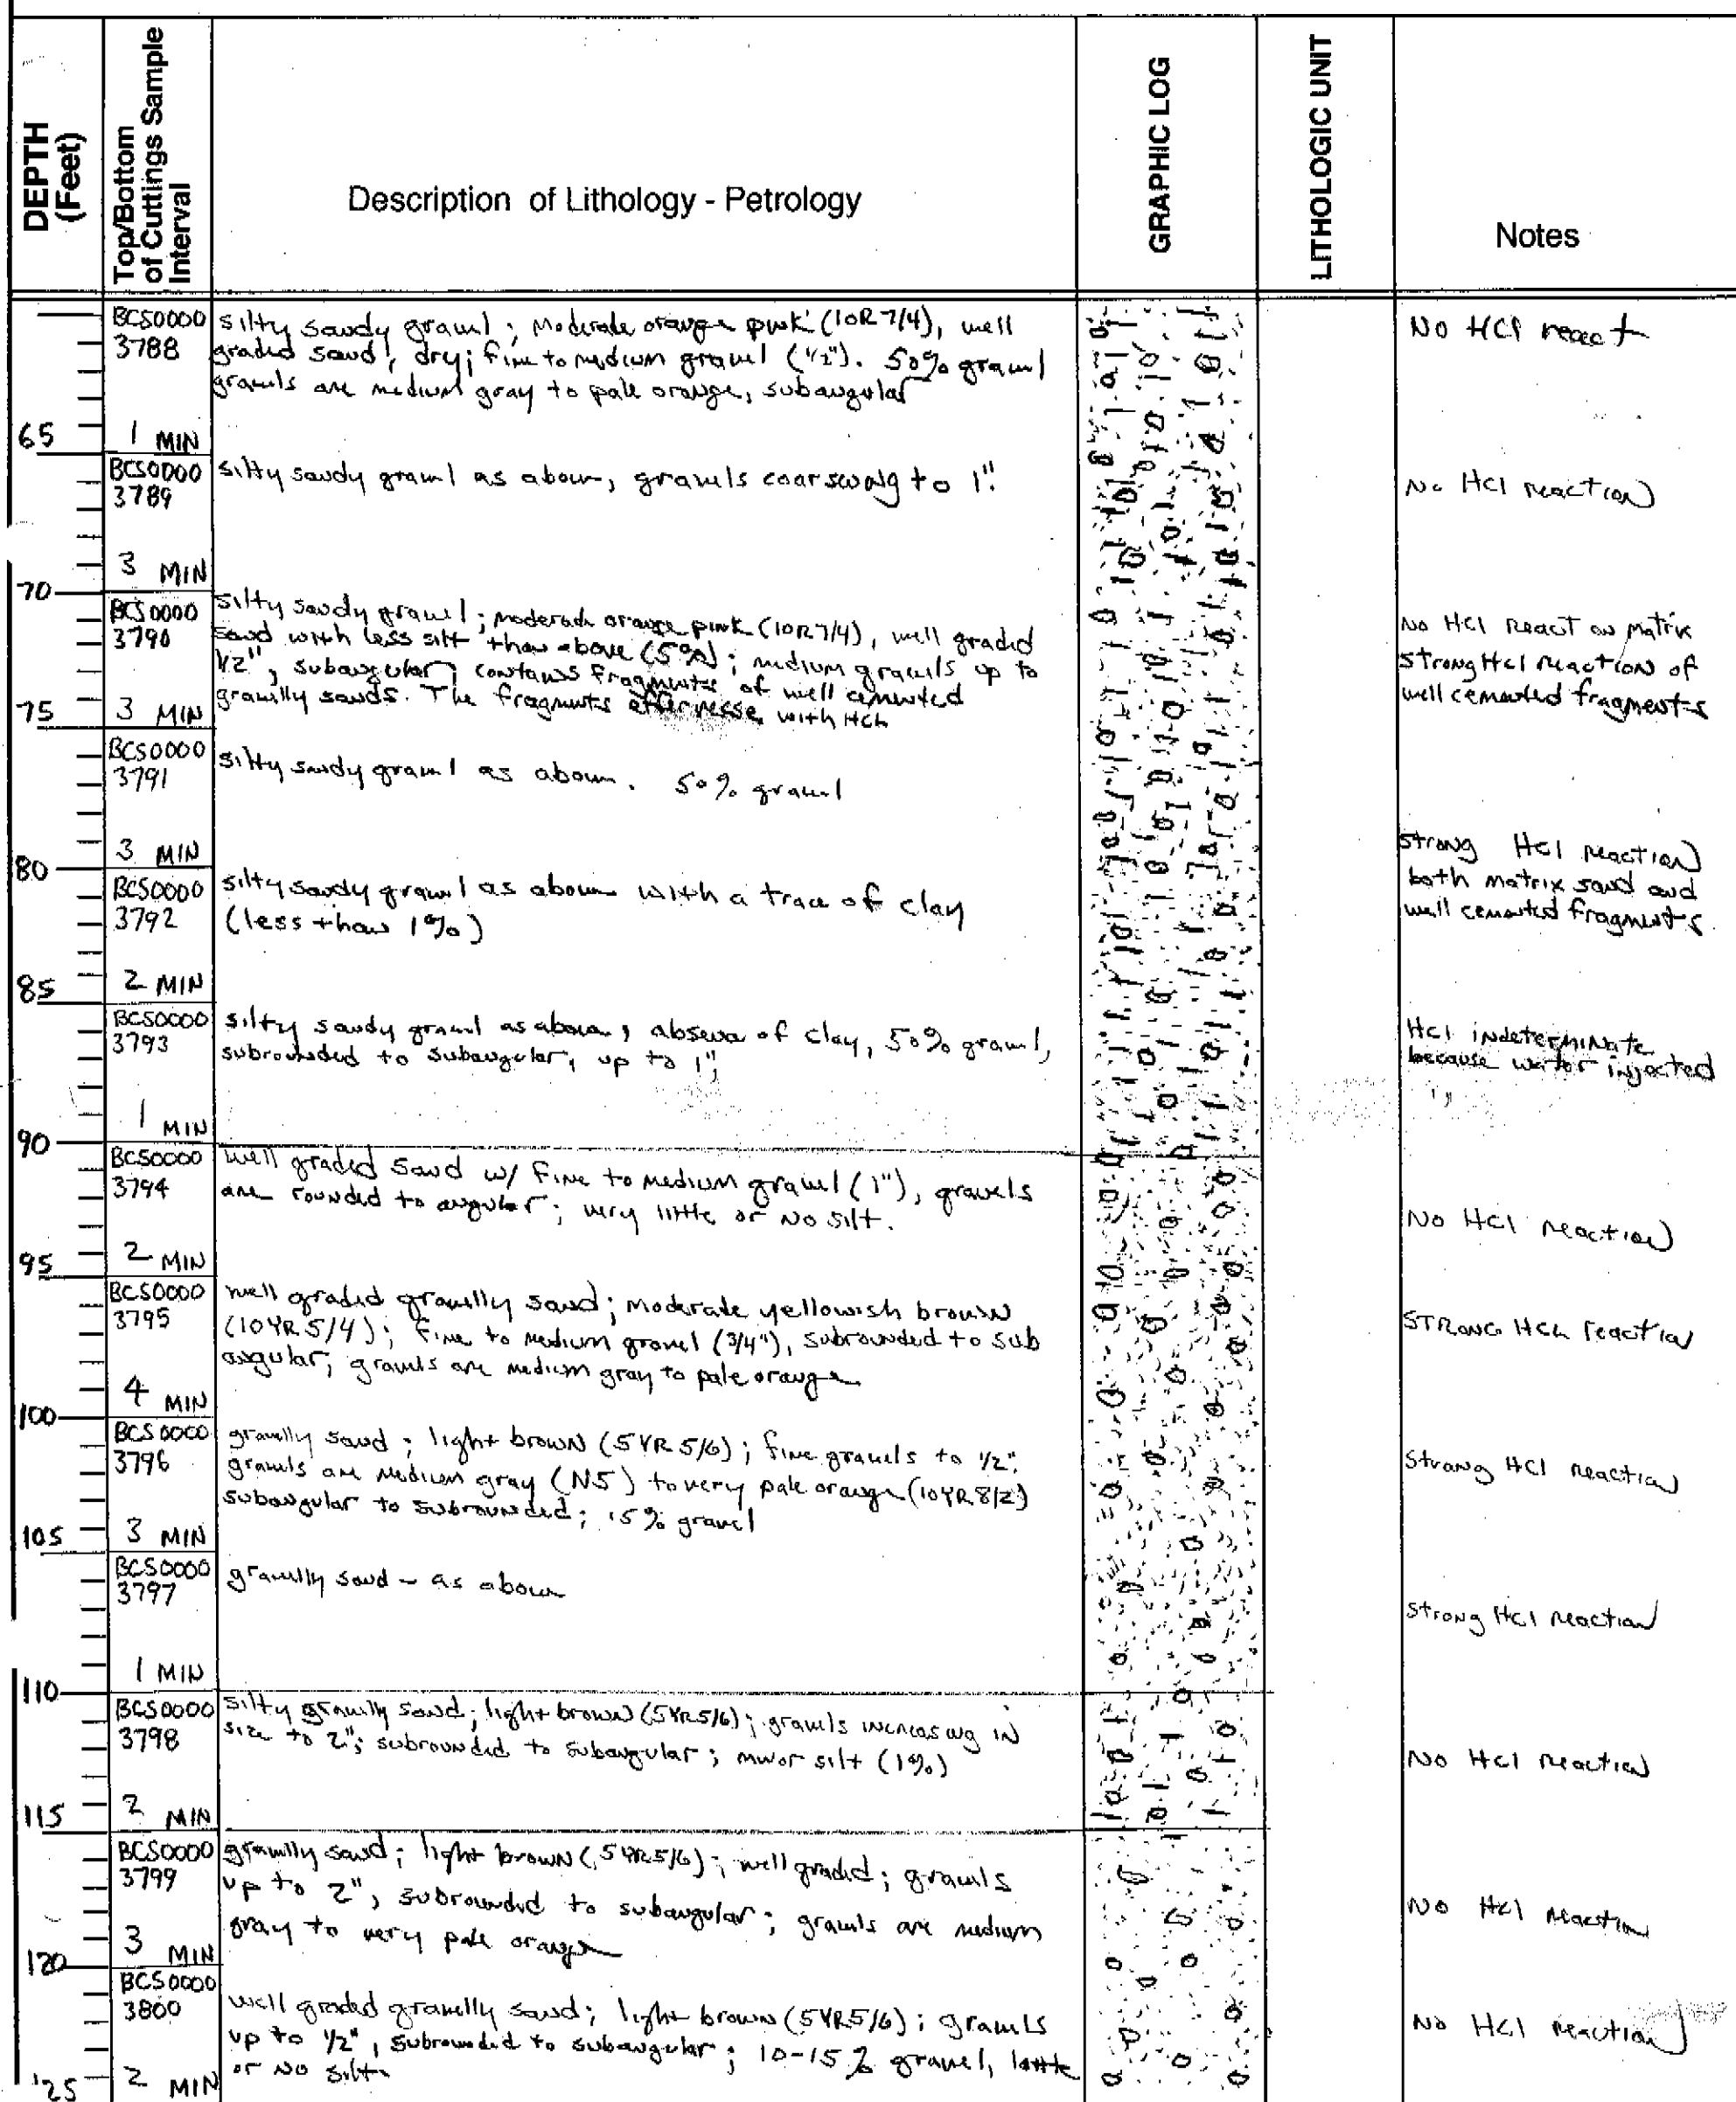 DEPTH
(Feet)
Top/Bottom
of Cuttings Sample
Interval
Description of Lithology - Petrology
GRAPHIC LOG
LITHOLOGIC UNIT
Notes
BCS0000
3788
silty sandy gravel; Moderate orange pink (10R 7/4), well
graded sand, dry; fine to medium gravel (1/2"). 50% gravel
gravels are medium gray to pale orange, subangular
No HCl react
65
1 MIN
BCS0000
3789
silty sandy gravel as above, gravels coarsening to 1".
No HCl reaction
3 MIN
70
BCS0000
3790
silty sandy gravel; moderate orange pink (10R7/4), well graded
sand with less silt than above (5%); medium gravels up to
1/2", subangular; contains fragments of well cemented
gravelly sands. The fragments effervesse with HCL
No HCl React on Matrix
strong HCl reaction of
well cemented fragments
75
3 MIN
BCS0000
3791
silty sandy gravel as above. 50% gravel
3 MIN
80
strong HCl reaction
both matrix sand and
well cemented fragments.
BCS0000
3792
silty sandy gravel as above with a trace of clay
(less than 1%)
85
2 MIN
BCS0000
3793
silty sandy gravel as above, absence of clay, 50% gravel,
subrounded to subangular, up to 1";
HCl indeterminate
because water injected
1 MIN
90
BCS0000
3794
well graded sand w/ fine to medium gravel (1"), gravels
are rounded to angular; very little or no silt.
No HCl reaction
95
2 MIN
BCS0000
3795
well graded gravelly sand; moderate yellowish brown
(10YR 5/4); fine to medium gravel (3/4"), subrounded to sub
angular; gravels are medium gray to pale orange
STRONG HCL reaction
4 MIN
100
BCS0000
3796
gravelly sand; light brown (5YR 5/6); fine gravels to 1/2".
gravels are medium gray (N5) to very pale orange (10YR 8/2)
subangular to subrounded; 15% gravel
Strong HCl reaction
105
3 MIN
BCS0000
3797
gravelly sand - as above
Strong HCl reaction
1 MIN
110
BCS0000
3798
silty gravelly sand; light brown (5YR5/6); gravels increasing in
size to 2"; subrounded to subangular; minor silt (1%)
No HCl reaction
115
2 MIN
BCS0000
3799
gravelly sand; light brown (5YR5/6); well graded; gravels
up to 2", subrounded to subangular; gravels are medium
gray to very pale orange
No HCl reaction
3 MIN
120
BCS0000
3800
well graded gravelly sand; light brown (5YR5/6); gravels
up to 1/2", subrounded to subangular; 10-15% gravel, little
or no silt.
No HCl reaction
125
2 MIN